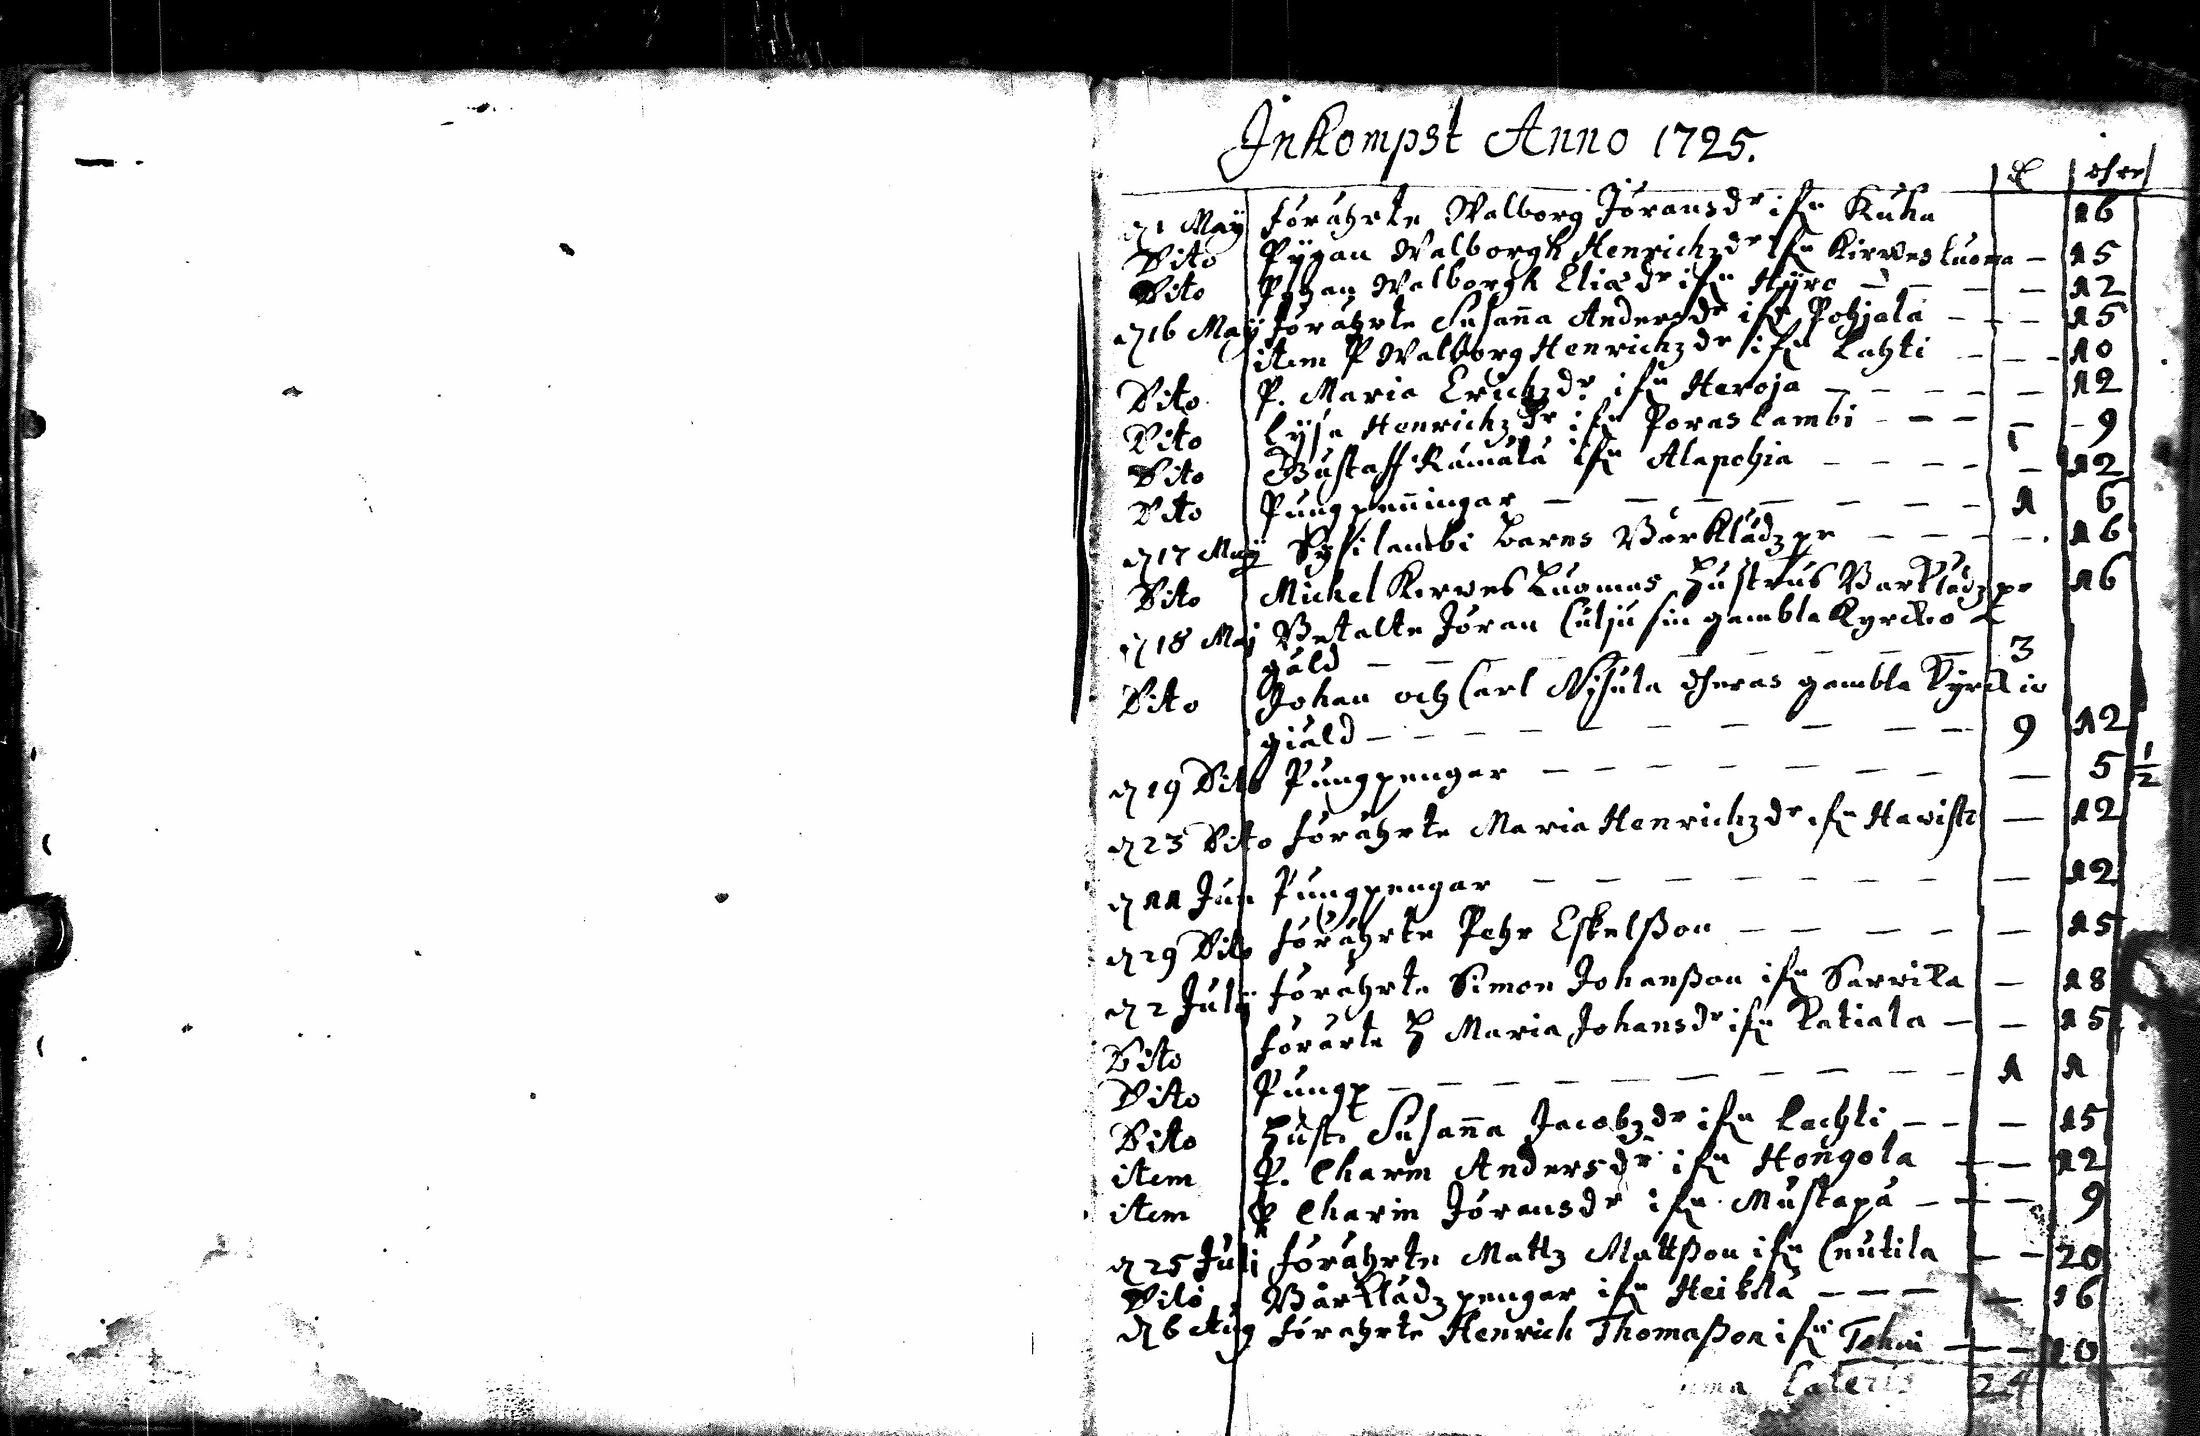 Inkompst Anno 1725.
öhrr
d 1 Maÿ förährte Walborg Jöransdr ifrn Kuha 16
Dito Pÿgan Walborgh Henrichzdr ifrn Kirwesluoma - 15
Dito Pygan Walborgh Eliædr ifrn Hÿrö - - - - 12
d 16 Maÿ förährte Susan̄a Andersdr ifrn Pohjala - - - 15
item P Walborg Henrichzdr ifrn Lahti - - - 10
Dito P. Maria Erichzdr ifrn Heroja - - - - - 12
Dito Lÿsa Henrichzdr ifrn Poraslambi - - - - - 9
Dito Gustaff Ramala ifrn Alapohja - - - - - 12
Dito Pungpen̄ingar - - - - - - - 1 6
d 17 Maÿ Sysilambi barns Bårklädzpr - - - - - 16
Dito Michel Kirwesluomas hustrus Barklädzpr 16
d 18 Maj Betalte Jöran sin gambla Kyrckio
gäld - - - - - - - 3
Dito Johan och Carl Nisula dheras gambla Kÿrckio
giäld - - - - - - - - - 9 12
d 19 Dito Pungpengar - - - - - - - - 5 1/2
d 23 Dito förährte Maria Henrichzdr ifrn Hawist - 12
d 11 Jun Pungpengar - - - - - - - - 12
d 29 Dito förährte Pehr Eskelßon - - - - - 15
d 2 Julÿ förährte Simon Johanßon ifrn Sarvika - 18
Dito förärte H Maria Johansdr ifrn Katiala - - 15
Dito Pungp - - - - - - - - - 1 1
Dito Hust. Susan̄a Jacobzdr ifrn Lachti - - - 15
item P. Charin Andersdr ifrn Hongola - - 12
item P Charin Jöransdr ifrn Mustapä - - - 9
d 25 Juli förährte Mattz Mattßon ifrn Cnutila - - 20
Dito Bårklädzpengar ifrn Heikilä - - - - 16
d 6 Aug förahrte Henrich Thomaßon ifrn Tohni - - 10
Lateris 24